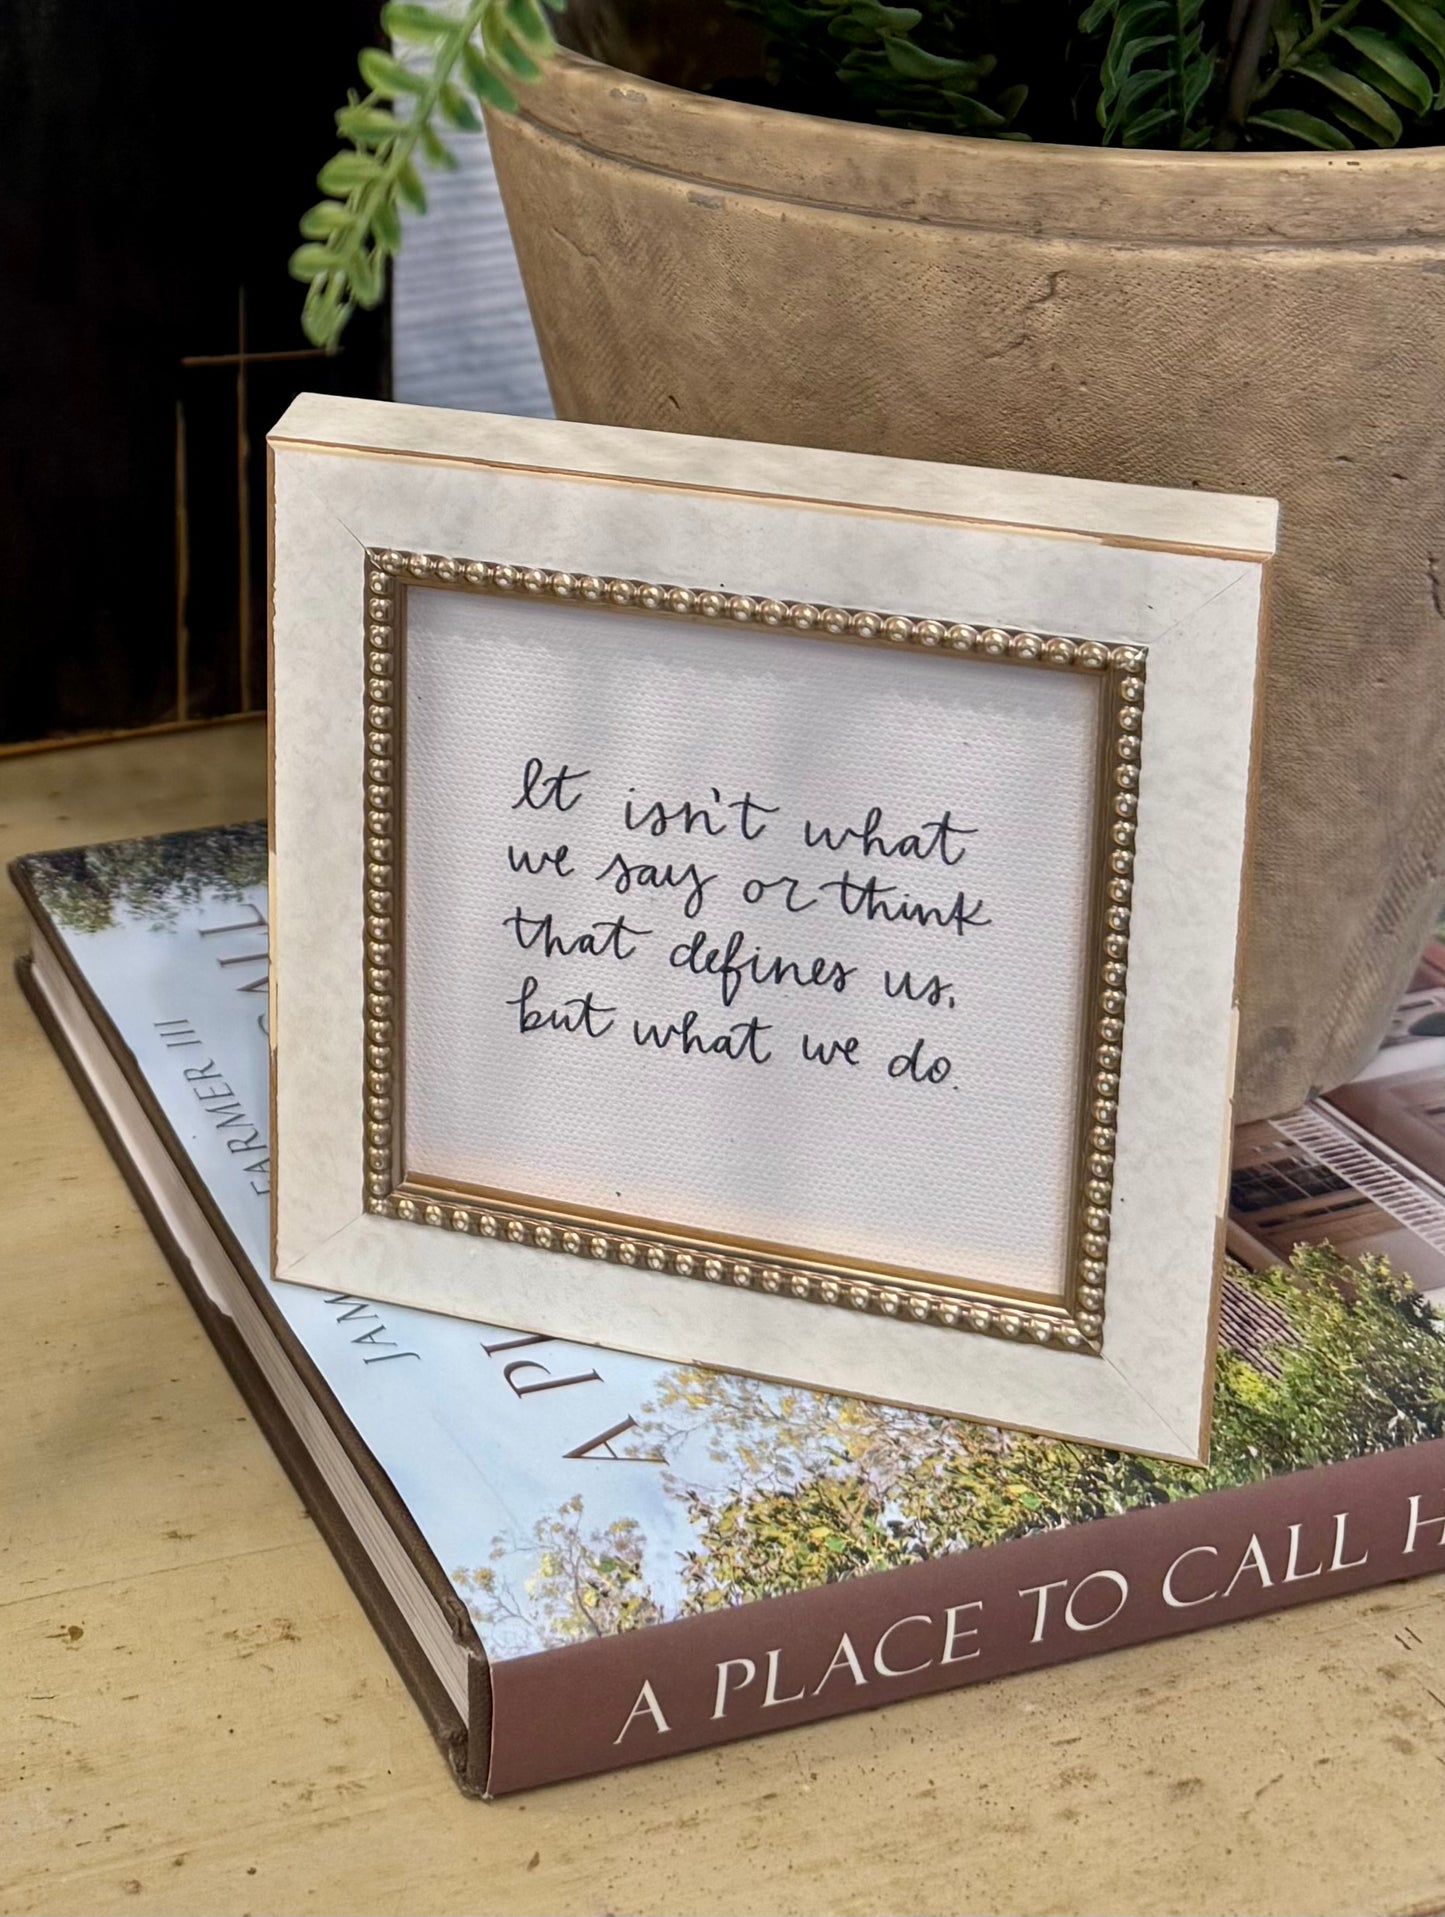 It isn't what
we say or think
that defines us,
but what we do.
FARMER III
JAM
A PL
A PLACE TO CALL H